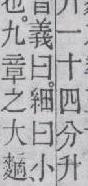 升一十四分升
音義曰。細曰小
也。九章之大